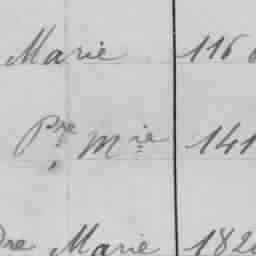 Marie 116
Pre Mie 141
dre Marie 182